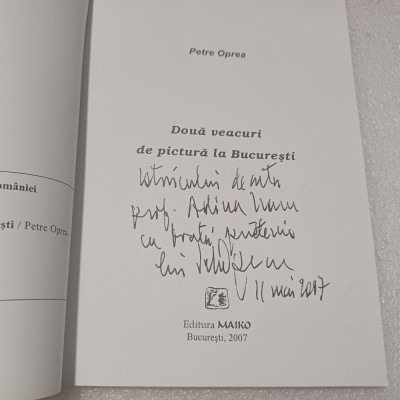 Petre Oprea
Două veacuri
de pictură la București
Istoricului de artă
prof. Adina Nanu
cu
11 mai 2007
Editura MAIKO
București, 2007
omâniei
ști / Petre Oprea